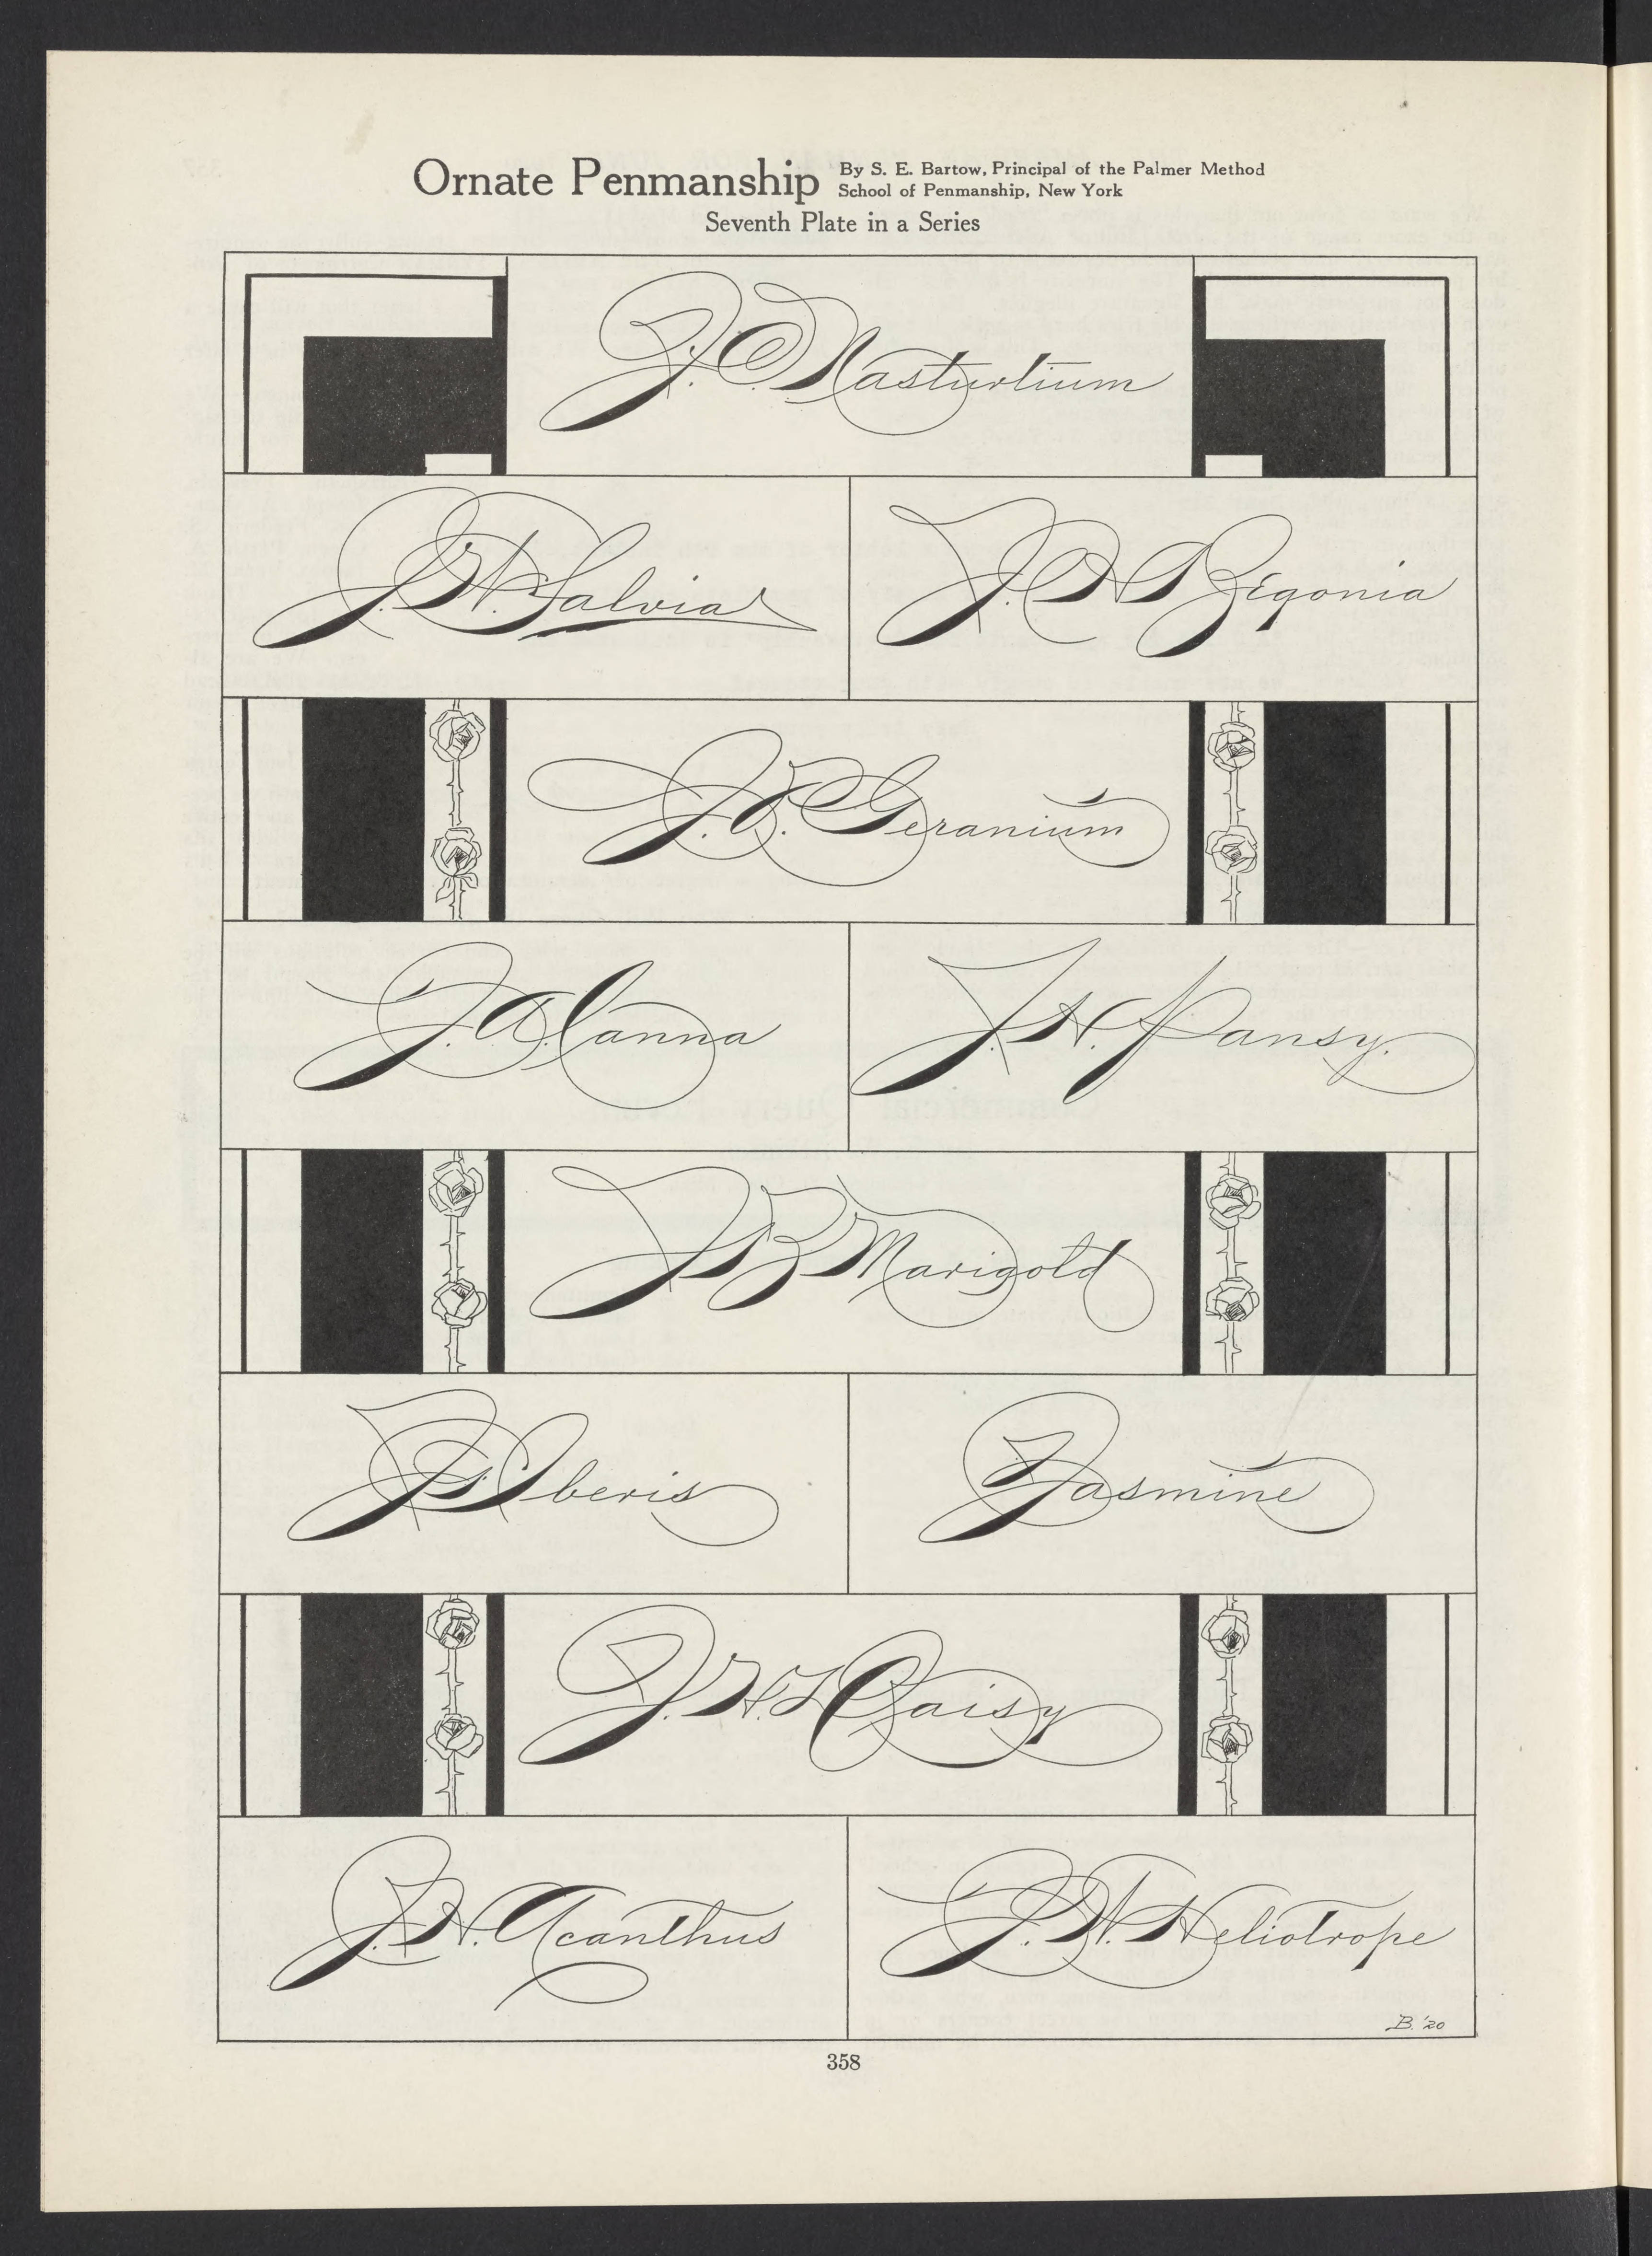 Ornate Penmanship
By S. E. Bartow, Principal of the Palmer Method
School of Penmanship, New York
Seventh Plate in a Series
J. C. Nasturtium
J. N. Salvia
J. Begonia
J. O. P. Geranium
J. A. Canna
J. N. Pansy.
J. B. Marigold
J. S. Iberis
Jasmine
J. H. L. Daisy
J. H. Acanthus
J. N. Heliotrope
B. '20
358